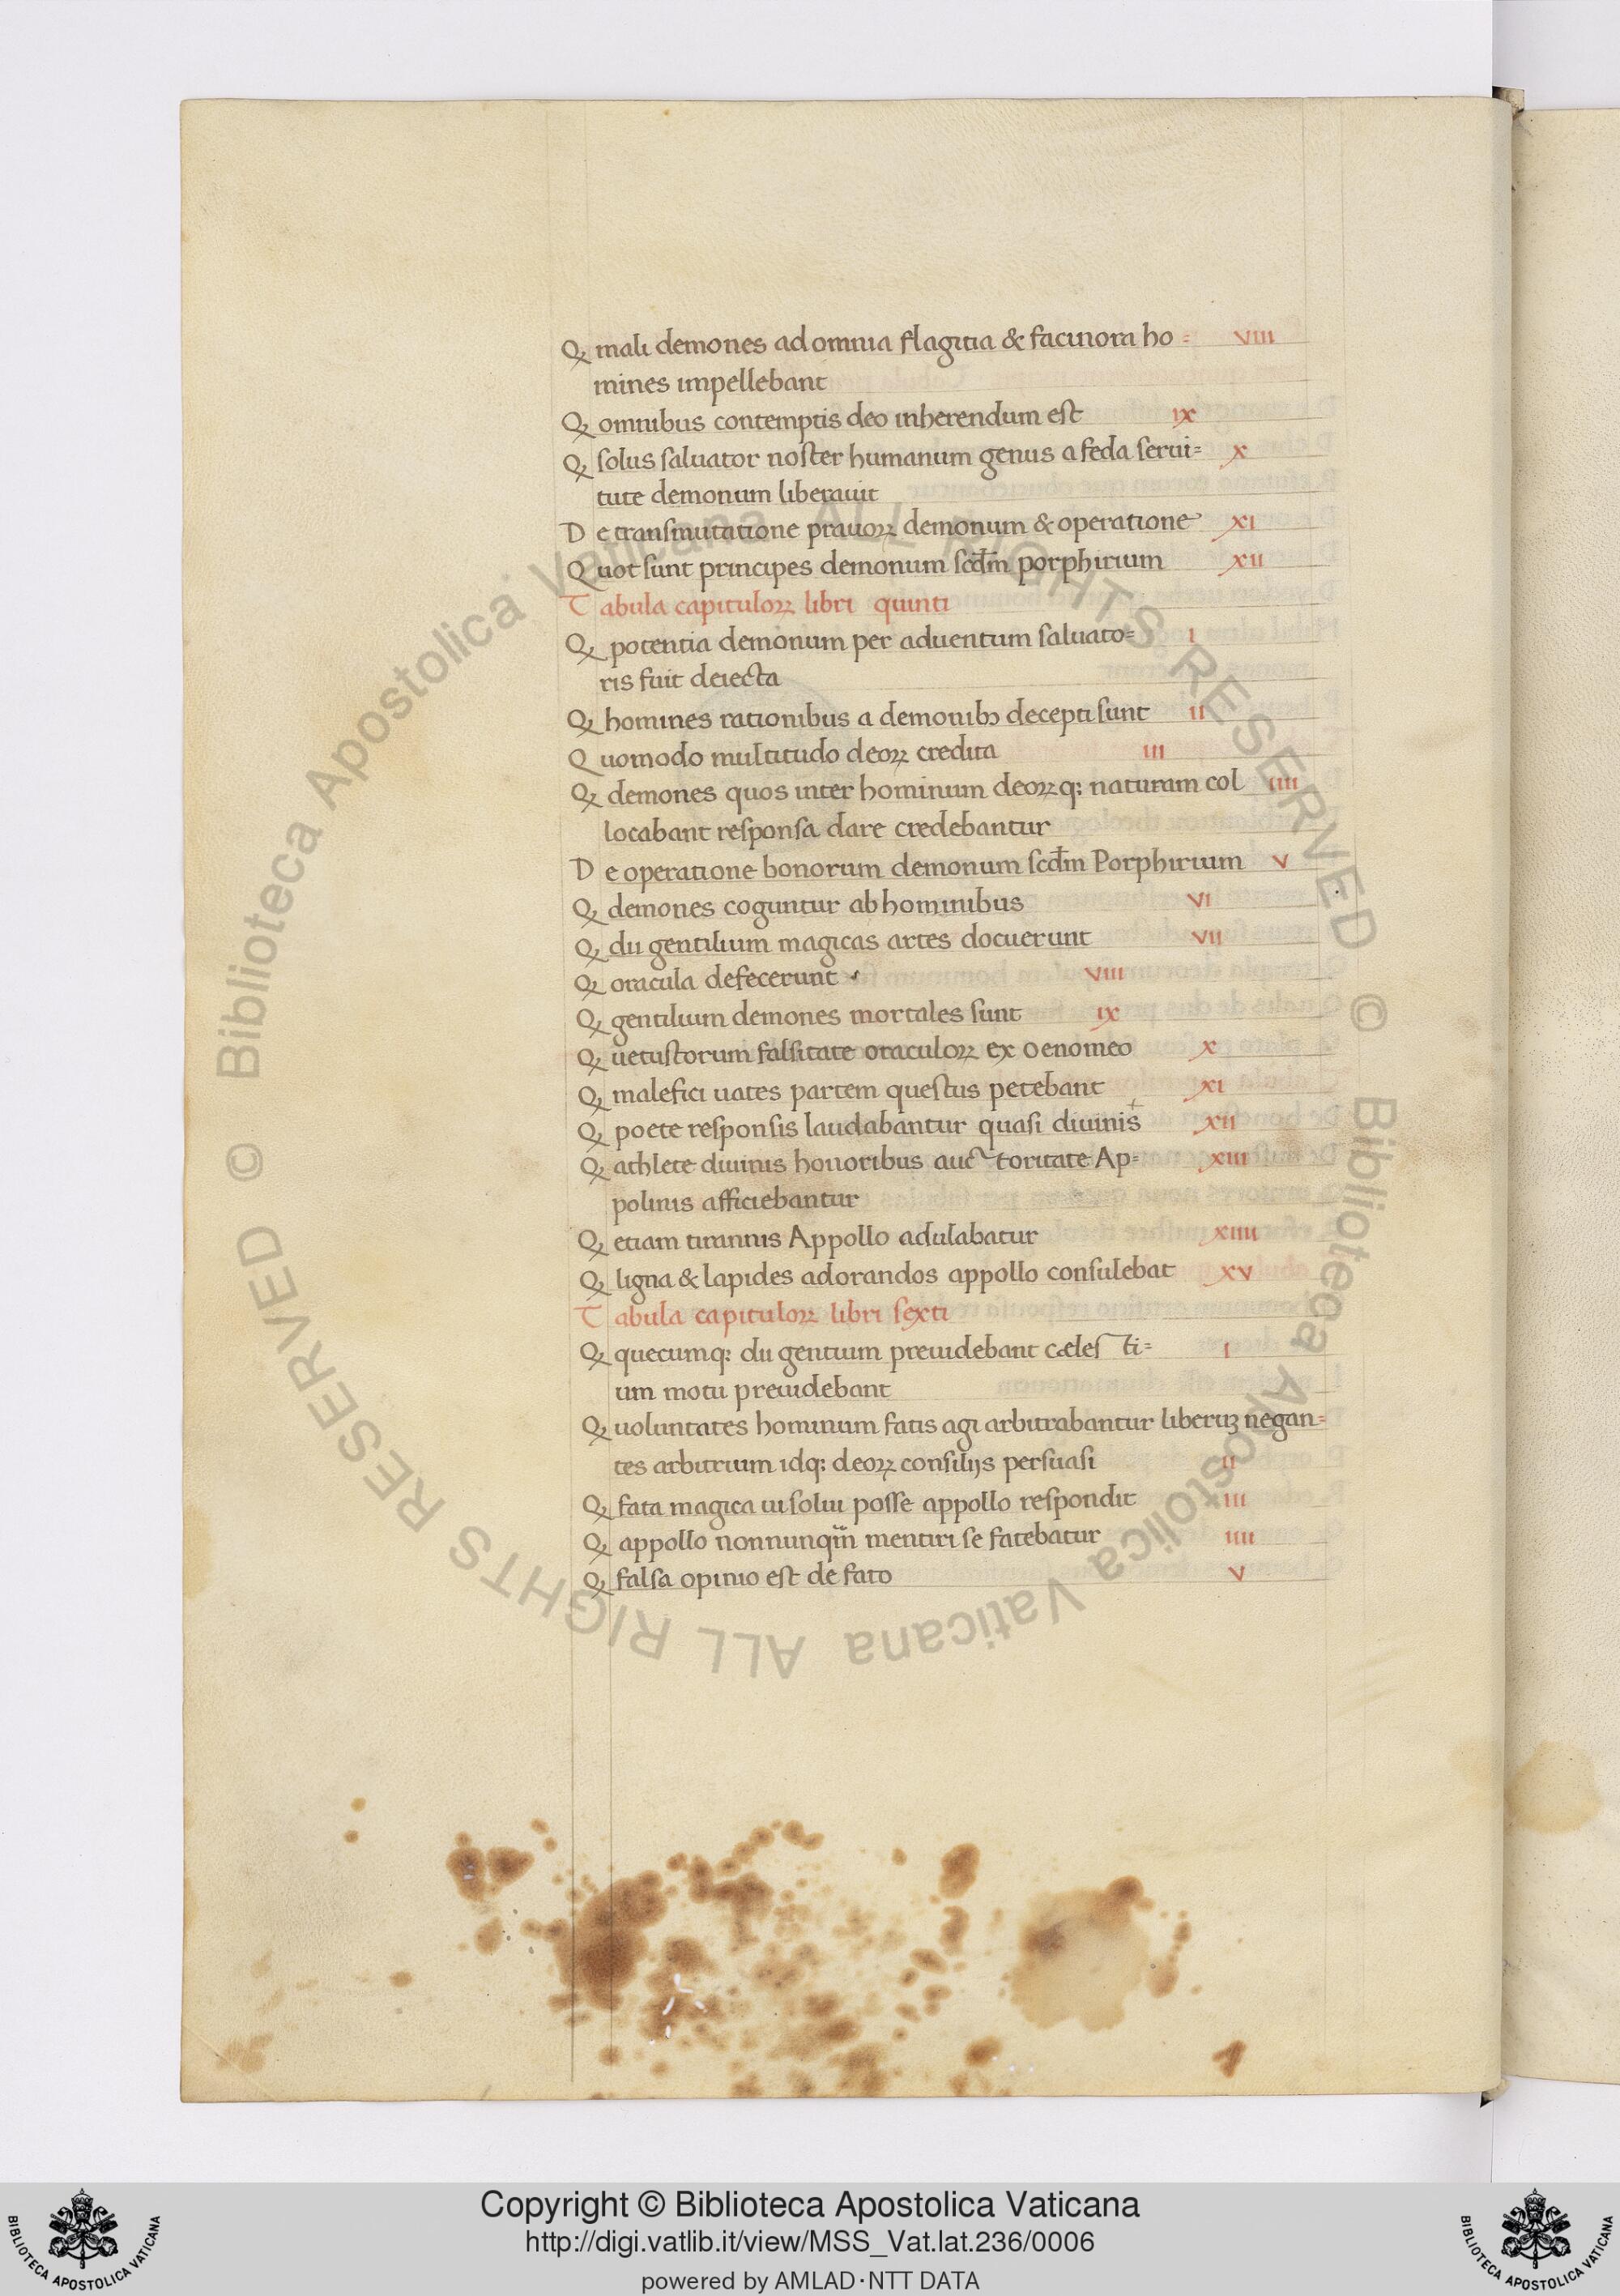 Qꝫ mali demones ad omnia flagitia & facinora ho= VIII
mines impellebant
Qꝫ omnibus contemptis deo inherendum est IX
Qꝫ solus saluator noster humanum genus a feda serui= X
tute demonum liberauit
De transmutatione prauoꝝ demonum & operatione XI
Quot sunt principes demonum scd̅m porphirium XII
Tabula capituloꝝ libri quinti
Qꝫ potentia demonum per aduentum saluato= I
ris fuit deiecta
Qꝫ homines rationibus a demonibꝫ decepti sunt II
Quomodo multitudo deoꝝ credita III
Qꝫ demones quos inter hominum deoꝝq; naturam col IIII
locabant responsa dare credebantur
De operatione bonorum demonum scd̅m Porphirium V
Qꝫ demones coguntur ab hominibus VI
Qꝫ dii gentilium magicas artes docuerunt VII
Qꝫ oracula defecerunt VIII
Qꝫ gentilium demones mortales sunt IX
Qꝫ uetustorum falsitate oraculoꝝ ex oenomeo X
Qꝫ malefici uates partem questus petebant XI
Qꝫ poete responsis laudabantur quasi diuinis XII
Qꝫ athlete diuinis honoribus auctoritate Ap= XIII
polinis afficiebantur
Qꝫ etiam tirannis Appollo adulabatur XIIII
Qꝫ ligna & lapides adorandos appollo consulebat XV
Tabula capituloꝝ libri sexti
Qꝫ quecumq; dii gentium preuidebant cælesti= I
um motu preuidebant
Qꝫ uoluntates hominum fatis agi arbitrabantur liberuꝫ negan=
tes arbitrium idq; deoꝝ consilijs persuasi II
Qꝫ fata magica ui solui posse appollo respondit III
Qꝫ appollo nonnunqm̅ mentiri se fatebatur IIII
Qꝫ falsa opinio est de fato V
© Biblioteca Apostolica Vaticana ALL RIGHTS RESERVED © Biblioteca Apostolica Vaticana ALL RIGHTS RESERVED
Copyright © Biblioteca Apostolica Vaticana
http://digi.vatlib.it/view/MSS_Vat.lat.236/0006
powered by AMLAD·NTT DATA
BIBLIOTECA APOSTOLICA VATICANA
BIBLIOTECA APOSTOLICA VATICANA